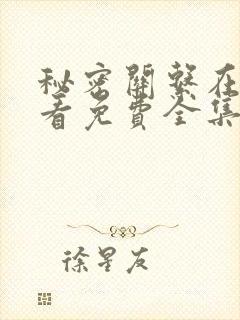 秘密關繫在
看免費全集
徐星友